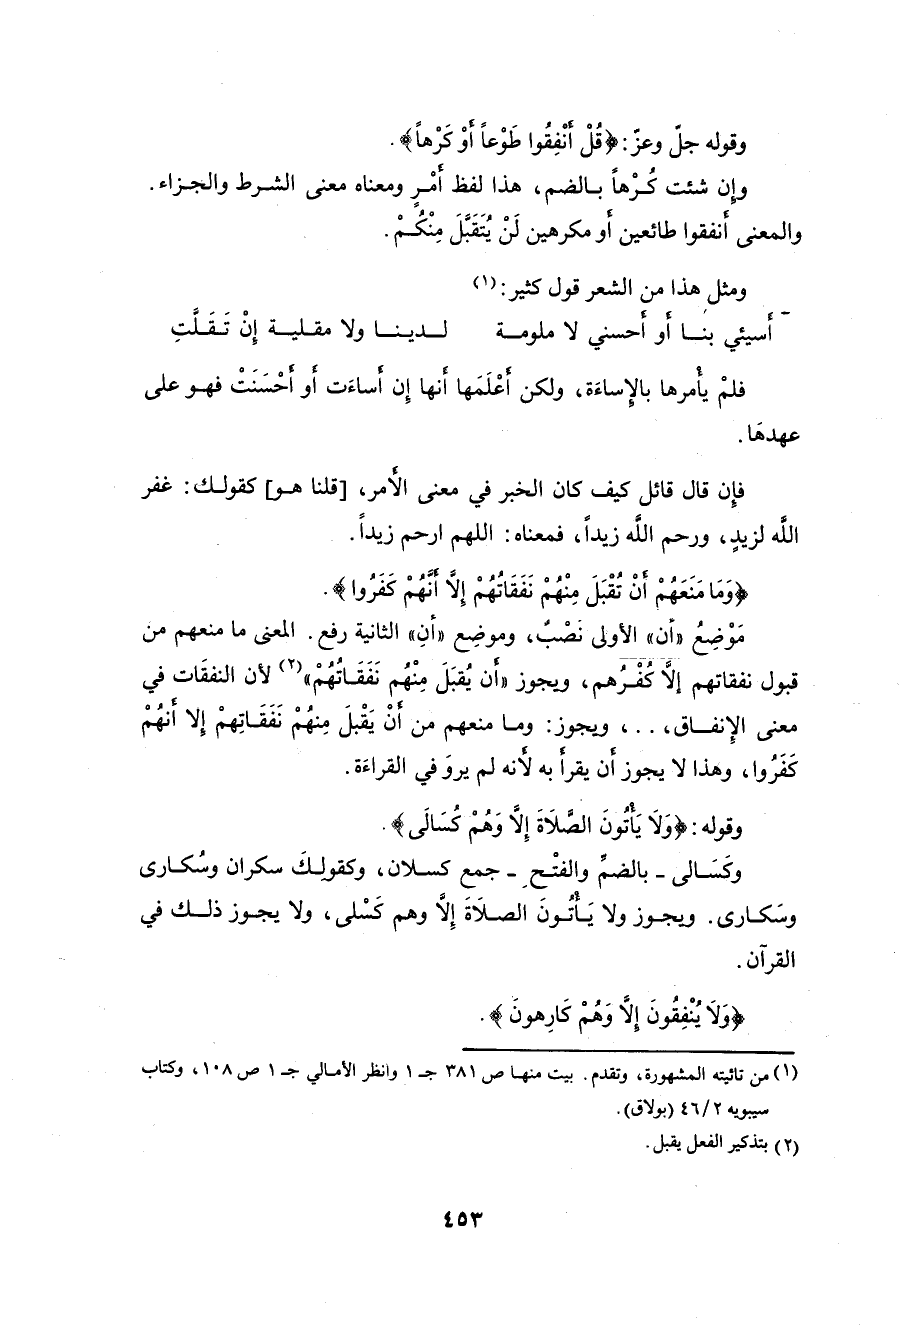 وقوله جلّ وعزّ: ﴿قُلْ أَنْفِقُوا طَوْعاً أَوْ كَرْهاً﴾.
وإن شئت كُـرْهاً بـالضم، هذا لفظ أَمْرٍ ومعناه معنى الشـرط والجـزاء.
والمعنى أَنفقوا طائعين أَو مكرهين لَنْ يُتَقَبَّلَ مِنْكُـمْ.
ومثل هذا من الشعر قول كثير: (١)
أَسيئي بنـا أَو أَحسني لا ملومـة لـديـنـا ولا مقـليـة إنْ تَـقَـلَّتِ
فلمْ يأْمرها بالإِساءَة، ولكن أَعْلَمَها أنها إن أَساءَت أَو أَحْسَنَتْ فهـو على
عهدهَا.
فإِن قال قائل كيف كان الخبر في معنى الأَمر، [قلنا هـو] كقولـك: غفر
اللَّه لزيدٍ، ورحم اللَّه زيداً، فمعناه: اللهم ارحم زيداً.
﴿وَمَا مَنَعَهُمْ أَنْ تُقْبَلَ مِنْهُمْ نَفَقَاتُهُمْ إِلَّا أَنَّهُمْ كَفَرُوا﴾.
مَوْضِعُ «أَن» الأولى نَصْبٌ، وموضِع «أَنِ» الثانية رفع. المعنى ما منعهم من
قبول نفقاتهم إِلَّا كُفْـرُهم، ويجوز «أَن يُقبَلَ مِنْهُم نَفَقَـاتُهُمْ»(٢) لأن النفقَات في
معنى الإِنفـاق، . . ، ويجوز: ومـا منعهم من أَنْ يَقْبلَ مِنهُمْ نَفَقَـاتِهِمْ إِلا أَنهُمْ
كَفَرُوا، وهذا لا يجوز أَن يقرأَ به لأَنه لم يروَ في القراءَة.
وقوله: ﴿وَلَا يَأْتُونَ الصَّلَاةَ إِلَّا وَهُمْ كُسَالَى﴾.
وكَسَـالى - بالضمِّ والفتْـحِ - جمع كسـلان، وكقولِـكَ سكران وسُكـارى
وسَكـارى. ويجـوز ولا يَـأْتُـونَ الصـلاَةَ إِلَّا وهم كَسْلى، ولا يجـوز ذلـك في
القرآن.
﴿وَلَا يُنْفِقُونَ إِلَّا وَهُمْ كَارِهونَ﴾.
(١) من تائيته المشهورة، وتقدم. بيت منهـا ص ٣٨١ جـ ١ وانظر الأمـالي جـ ١ ص ١٠٨، وكتاب
سيبويه ٤٦/٢ (بولاق).
(٢) بتذكير الفعل يقبل.
٤٥٣